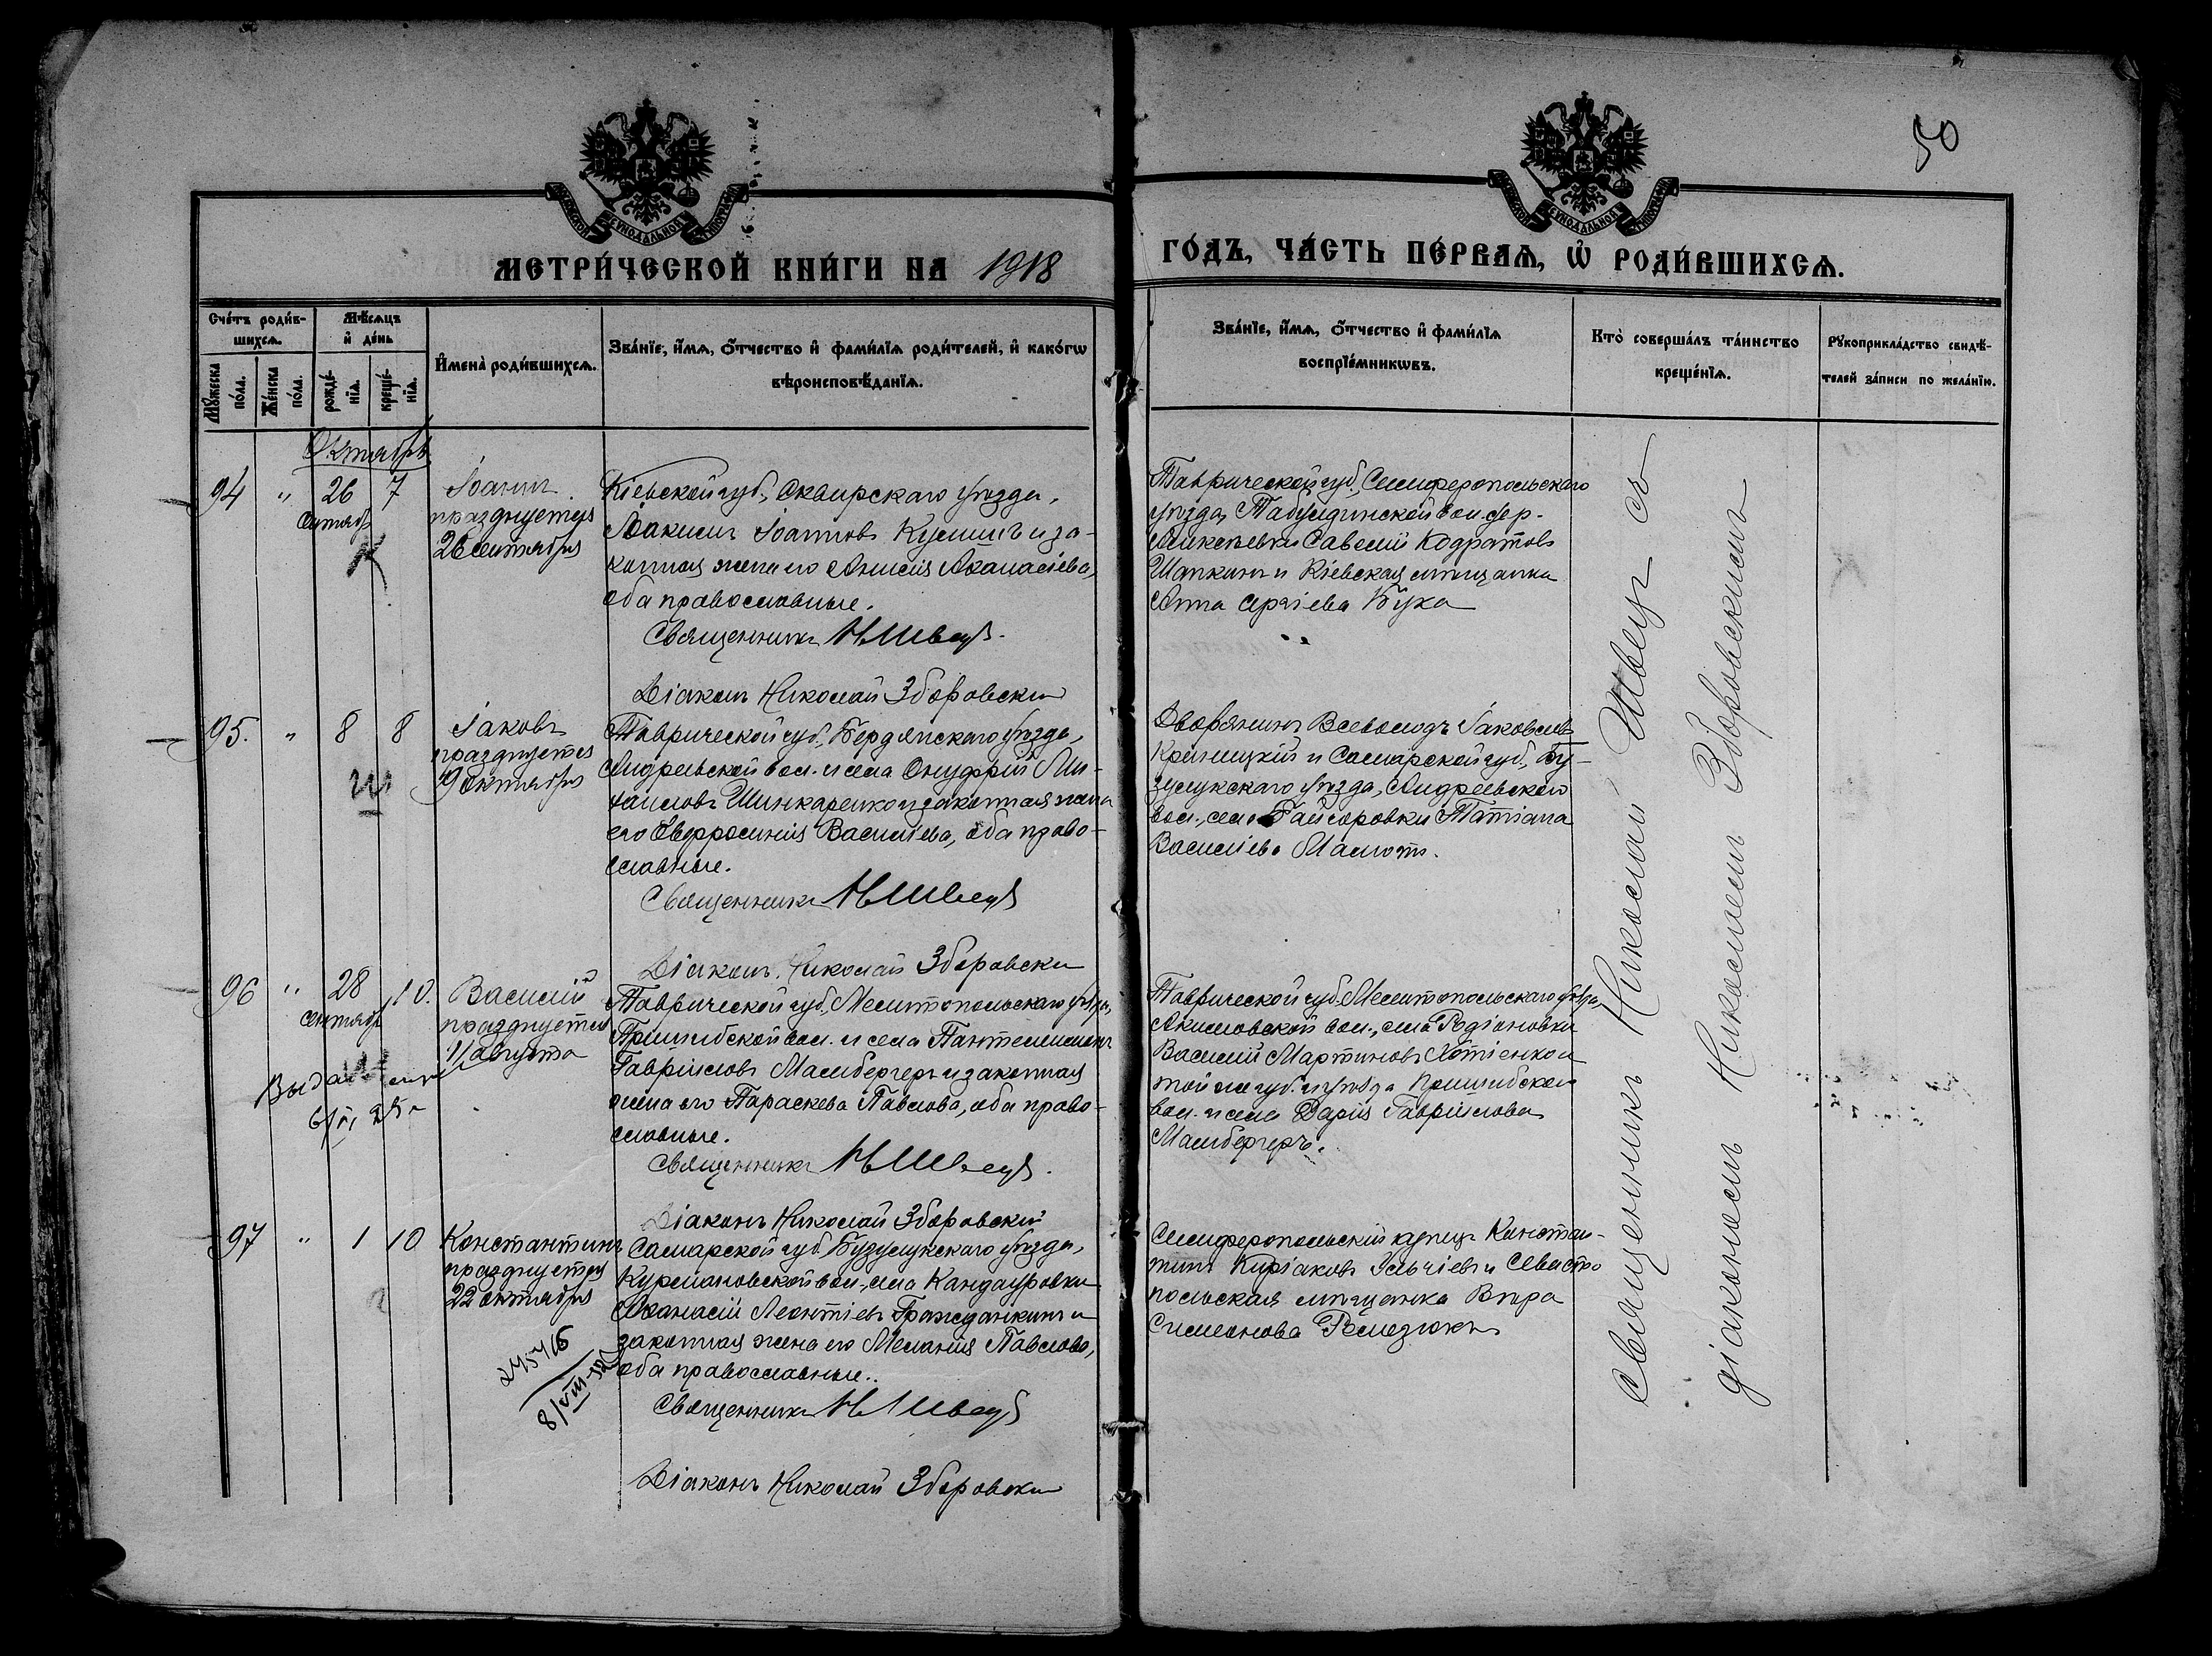 50
МЕТРИ́ЧЕСКОЙ КНИ́ГИ НА 1918
ГО́ДЪ, ЧА́СТЬ ПЕ́РВАѦ, Ѡ҆ РОДИ́ВШИХСѦ.
Сче́тъ роди́в-
шихсѧ.
Мꙋ́жеска
по́ла.
Же́нска
по́ла.
Мѣ́сѧцъ
и҆ де́нь
рожде́-
нїѧ.
креще́-
нїѧ.
И҆мена̀ роди́вшихсѧ.
Зва́нїе, и҆́мѧ, ѻ҆́тчество и҆ фами́лїѧ роди́телей, и҆ како́гѡ
вѣроисповѣ́данїѧ.
Зва́нїе, и҆́мѧ, ѻ҆́тчество и҆ фами́лїѧ
воспрїе́мникѡвъ.
Кто̀ соверша́лъ та́инство
креще́нїѧ.
Рꙋкоприкла́дство свидѣ́-
телей за́писи по жела́нїю.
Октябрь
94 " 26 7
Сентябр
Іоаннъ
празднуется
26 сентября
Кіевской губ., Сквирскаго уѣзда,
Іоакимъ Іоанновъ и за-
конная жена его Анисія Аѳанасіева,
оба православные.
Священникъ НШвец
Діаконъ Николай Зборовски
Таврической губ., Симферопольскаго
уѣзда, Табулдинской вол. дер.
Савелій Кодратовъ
Шапкинъ и Кіевская мѣщанка
Анна Сергіева Бука
95. " 8 8
Іаковъ
празднуется
9 октября
Таврической губ., Бердянскаго уѣзда,
Андреевской вол. и села Онуфрій Ми-
хаиловъ Шинкаренко и законная жена
его Евфросинія Василіева, оба право-
славные.
Священникъ НШвец
Діаконъ Николай Зборовски
Дворянинъ Всеволодъ Іаковлев
Креницкій и Самарской губ., Бу-
зулукскаго уѣзда, Андреевской
вол., села Татіана
Василіева Мамотъ.
96 " 28 10.
Сентябр
Василій
празднуется
11 августа
Выдан
Таврической губ., Мелитопольскаго уѣзда,
Пришибской вол. и села Пантелеимонъ
Гавріиловъ Мамбергеръ и законная
жена его Параскева Павлова, оба право-
славные.
Священникъ НШвец.
Діаконъ Николай Зборовскій
Таврической губ. Мелитопольскаго уѣзда,
Акимовской вол., села Родіоновки
Василій Мартиновъ Хотіенко и
той же губ. и уѣзда Пришибской
вол. и села Дарія Гавріилова
Мамбергеръ.
97 " 1 10
Константинъ
празднуется
22 октября
8/VIII-52
Самарской губ. Бузулукскаго уѣзда,
Курмановской вол., села Кандауровки
Аѳанасій Леонтіевъ Гражданкинъ и
законная жена его Меланія Павлова,
оба православные.
Священникъ НШвец
Діаконъ Николай Зборовски
Симферопольскій купецъ Констан-
тинъ Киріаковъ и Севасто
польская мѣщанка Вѣра
Симеонова Ремезюкъ
Священникъ Николай Швец со
діакономъ Николаемъ Зборовскимъ